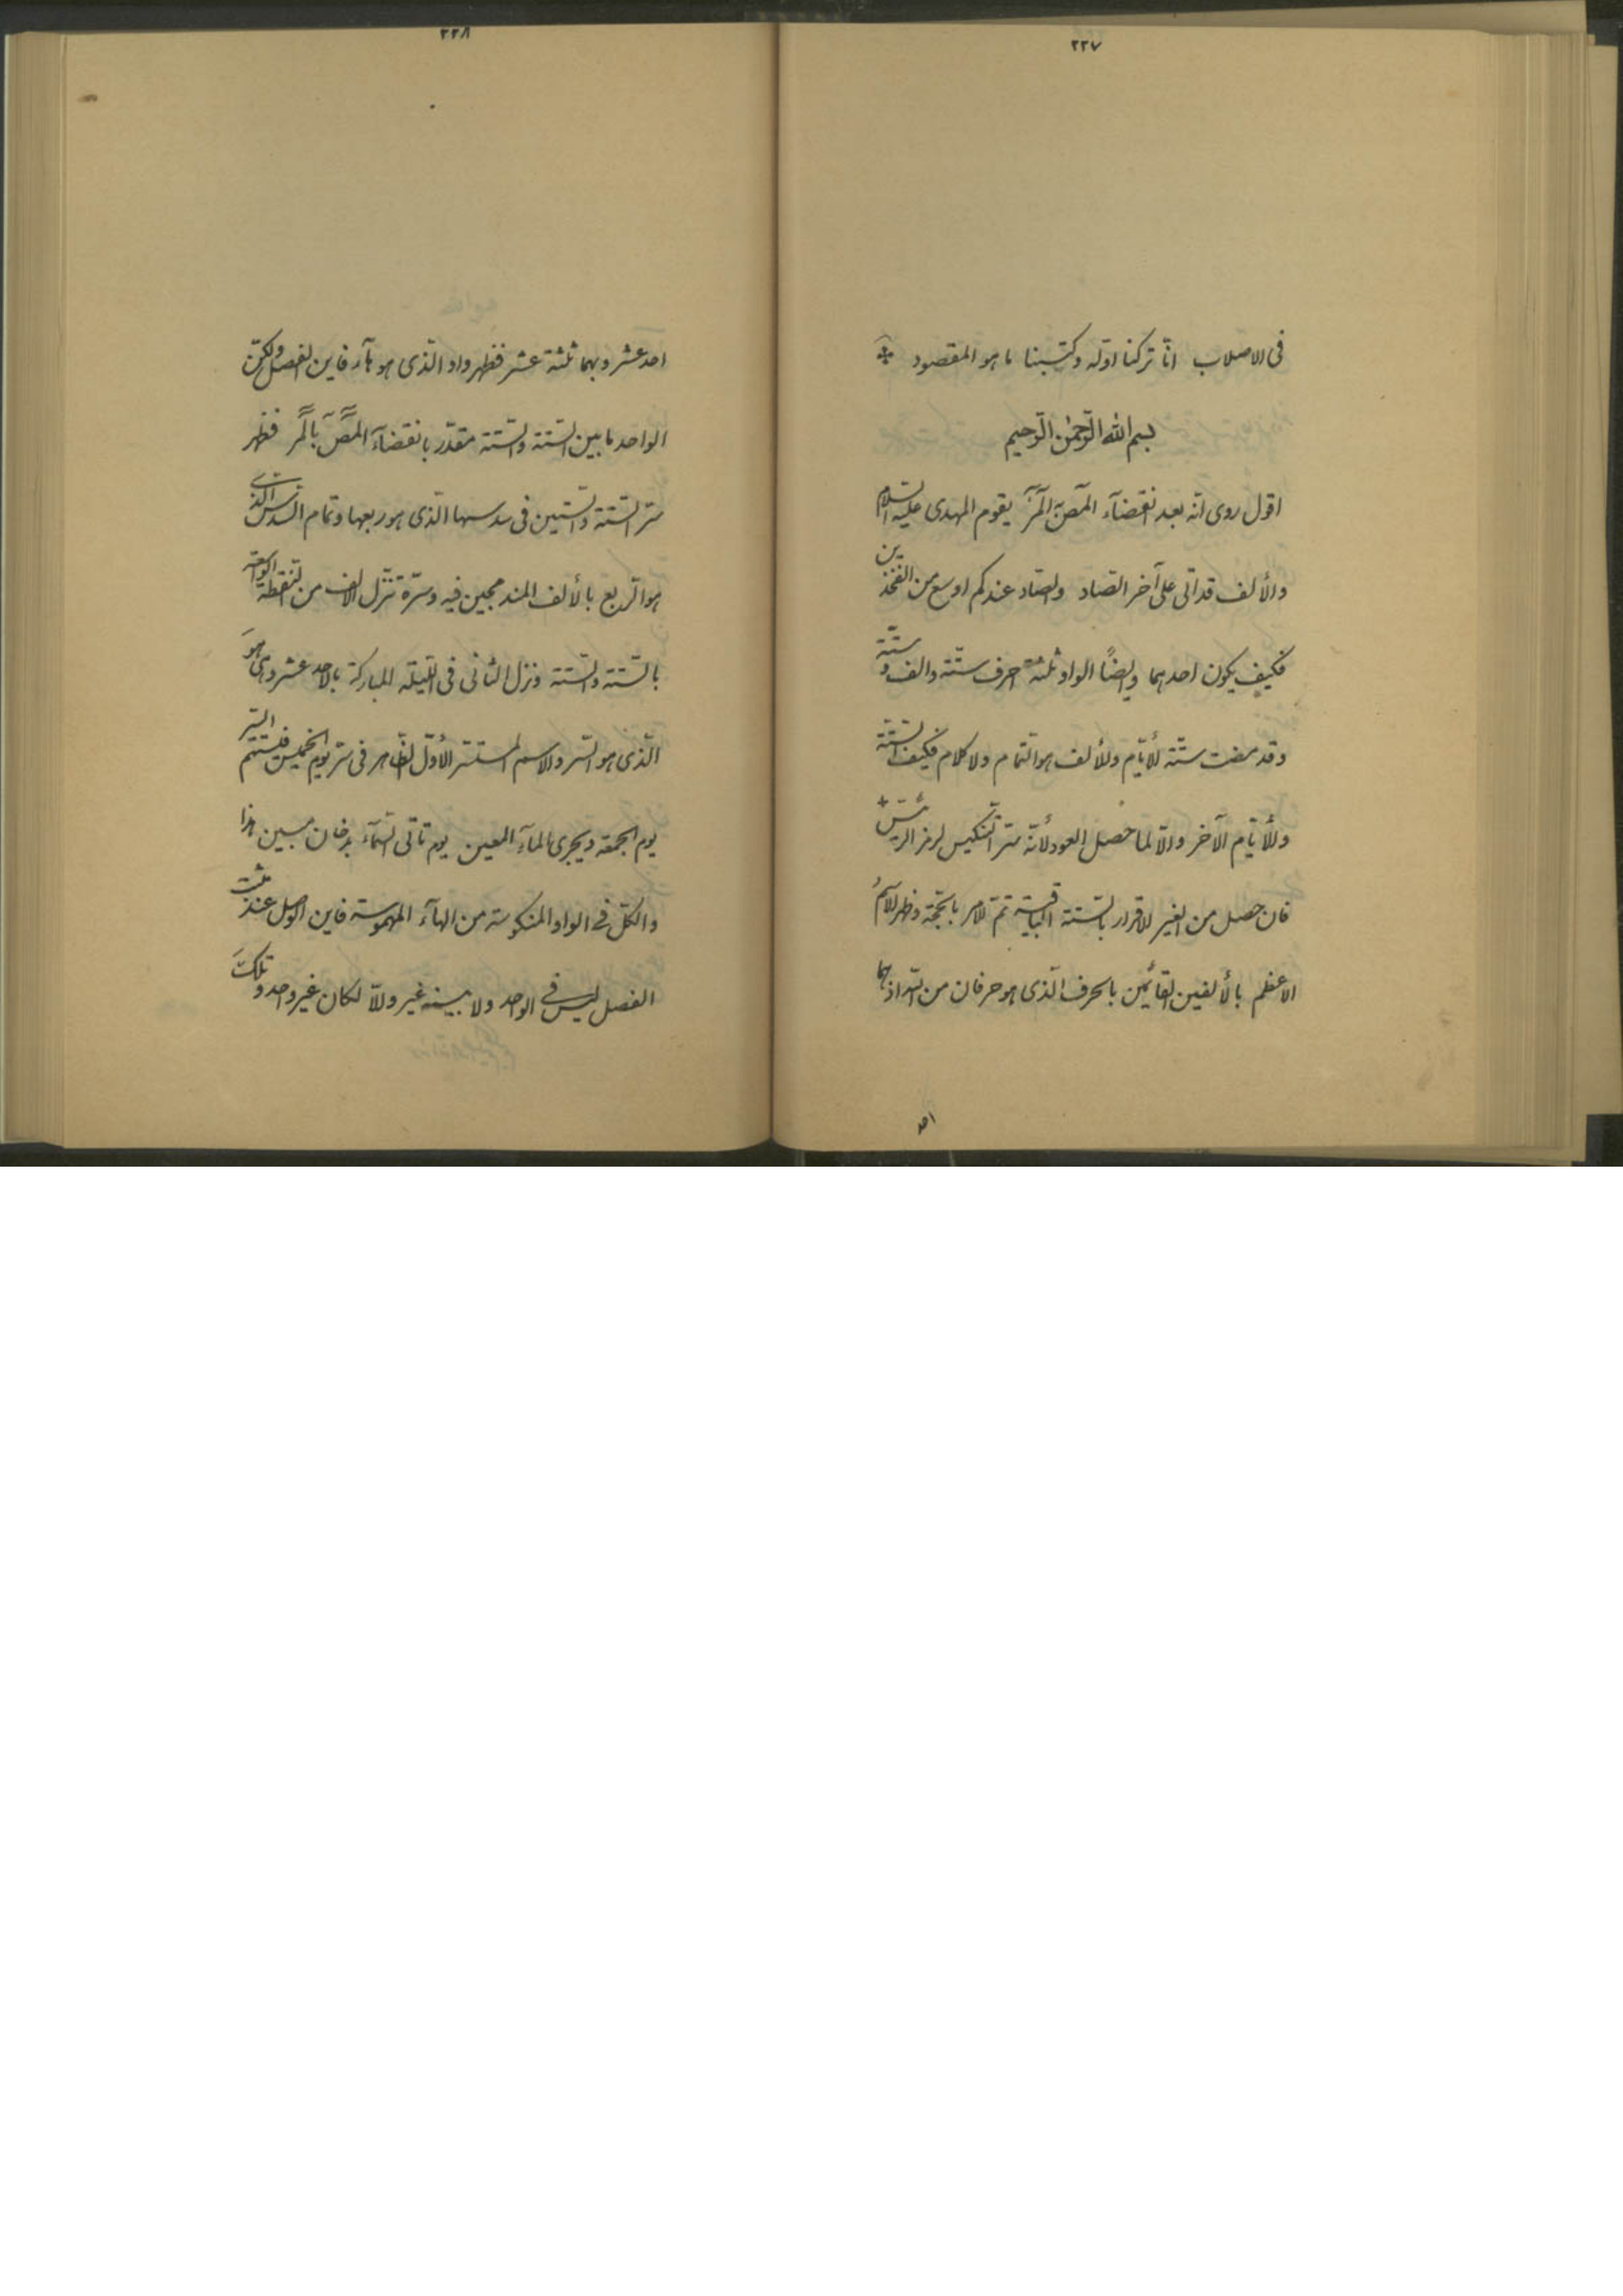 ٢٢٧
فی الاصلاب انّا ترکنا اوّله وکتبنا ما هو المقصود
بسم اللّه الرّحمن الرّحیم
اقول روی انّه بعد انقضآء المٓصٓ بالٓمٓرٓ یقوم المهدی علیه السّلام
والألف قد اتی علی آخر الصّاد والصّاد عندکم اوسع من الفخذین
فکیف یکون احدهما وایضًا الواو ثلثة احرف ستّة والف وستّة
وقد مضت ستّة الأیّام والألف هو التّمام ولا کلام فکیف السّتّة
والأیّام الآخر والّا لما حصل العود لأنّه سرّ التّنکیس لرمز الرّئیس
فان حصل من الغیر الاقرار بالسّتّة الباقیة تمّ الامر بالحجّة وظهر الاسم
الاعظم بالألفین القائمین بالحرف الّذی هو حرفان من اللّه اذ بهما
احد
٢٢٨
احد عشر وبهما ثلثة عشر فظهر واو الّذی هو هآء فاین الفصل ولکنّ
الواحد ما بین السّتّة والسّتّة مقدّر بانقضآء المٓصٓ بالٓمٓرٓ فظهر
سرّ السّتّة والسّتّین فی سدسها الّذی هو ربعها وتمام السّدس الّذی
هو الرّبع بالألف المندمجین فیه وسرّه تنزّل الالف من النّقطة الواسعة
بالسّتّة والسّتّة ونزل الثّانی فی اللّیلة المبارکة بالاحد عشر وهی هو
الّذی هو السّر والاسم المستتر الأوّل الظّاهر فی سرّ یوم الخمیس فیستتمّ السّر
یوم الجمعة ویجری المآء المعین یوم تأتی السّمآء بدخان مبین هذا
والکلّ فی الواو المنکوسة من الهآء المهموسة فاین الوصل عند مثبت
الفصل لیس فی الواحد ولا بینه غیر والّا لکان غیر واحد وتلک